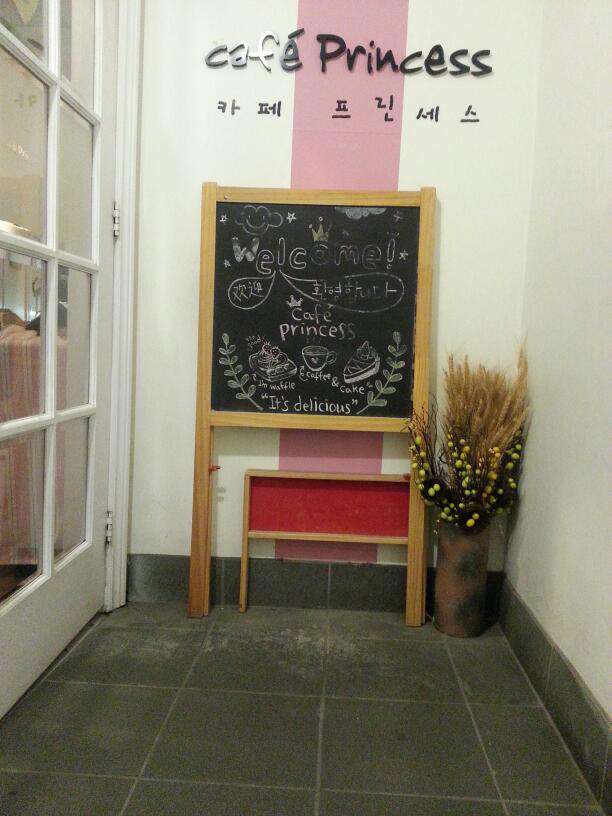 café Princess
카페 프린세스
Welcome!
欢迎 환영합니다
Café
princess
I'm waffle coffee & cake
"It's delicious"